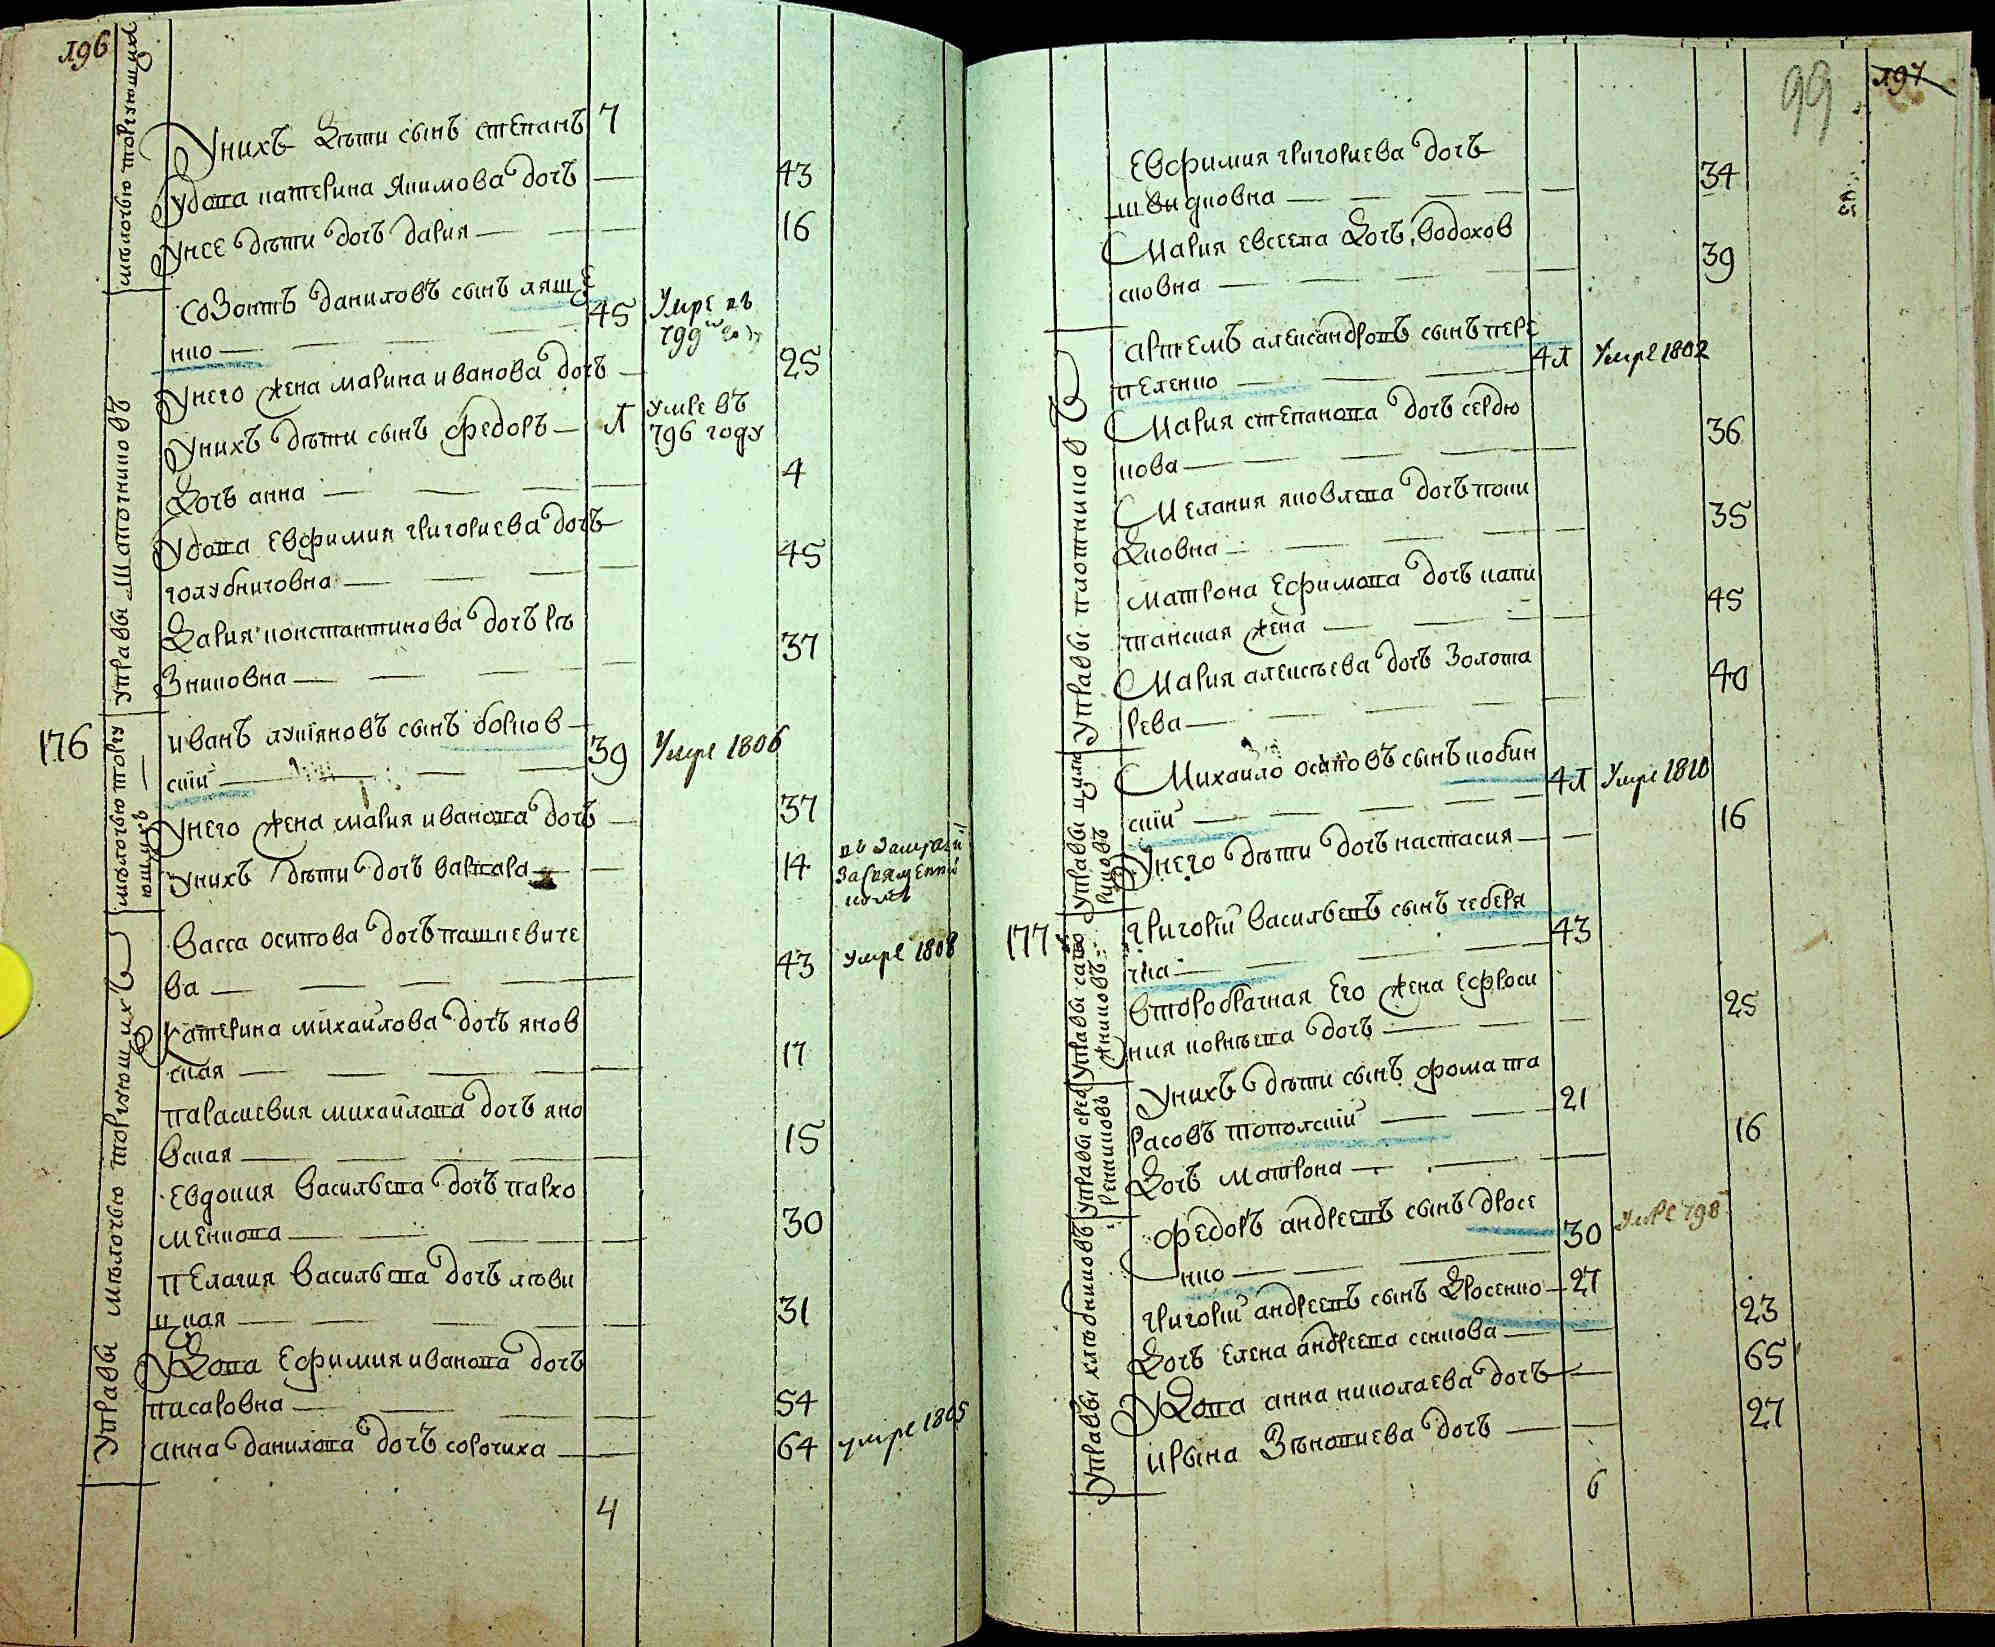 196
мѣлочью торгующих
Унихъ дѣти сынъ степанъ 7
удова катерина якимова дочь 43
унее дѣти дочь дария 16
Управы шапошников
созонтъ даниловъ сынъ ляще
нко 45 Умре въ 799м году
Унего жена марина иванова дочъ 25
Унихъ дѣти сынъ федоръ 1 умре въ 796 году
дочь анна 4
Удова евфимия григориева дочъ
голубничовна 45
дария константинова дочъ рѣ
зниковна 37
176
мѣлочью торгу
ющихъ
иванъ лукіяновъ сынъ борков
скіи 39 Умре 1806
Унего жена мария иванова дочъ 37
Унихъ дѣти дочъ варвара 14
Управы мѣлочью торгующихъ
васса осипова дочь пашкевиче
ва 43 умре 1808
катерина михаилова дочъ янов
ская 17
параскевия михаилова дочъ яно
вская 15
евдокия васильева дочъ пархо
менкова 30
пелагия васильева дочъ люви
цкая 31
Удова ефимия иванова дочъ
писаровна 54
анна данилова дочь сорочиха 64 умре 1805
4
197
99
евфимия григориева дочъ
швидковна 34
Мария евсеева дочъ водохов
сковна 39
Управы плотников
артемъ александровъ сынъ пере
пеленко 41 Умре 1802
Мария степанова дочь сердю
кова 36
Мелания яковлева дочъ поки
дковна 35
матрона ефимова дочь капи
танская жена 45
Мария алексѣева дочъ золота
рева 40
Михаило осиповъ сынъ кобин
скіи 41 Умре 1810
Унего дѣти дочь настасия 16
177
Управы сапо
жниковъ
григоріи васильевъ сынъ чеберя
чка 43
второбрачная его жена ефроси
ния корнѣева дочъ 25
Управы сред
Унихъ дѣти сынъ фома та
расовъ топольскіи 21
дочь матрона 16
Управы хлѣбниковъ
федоръ андреевъ сынъ дросе
нко 30 умре 798
григоріи андреевъ сынъ дросенко 27
дочъ елена андреева сенкова 23
Удова анна николаева дочъ 65
ирына зѣновиева дочь 27
6